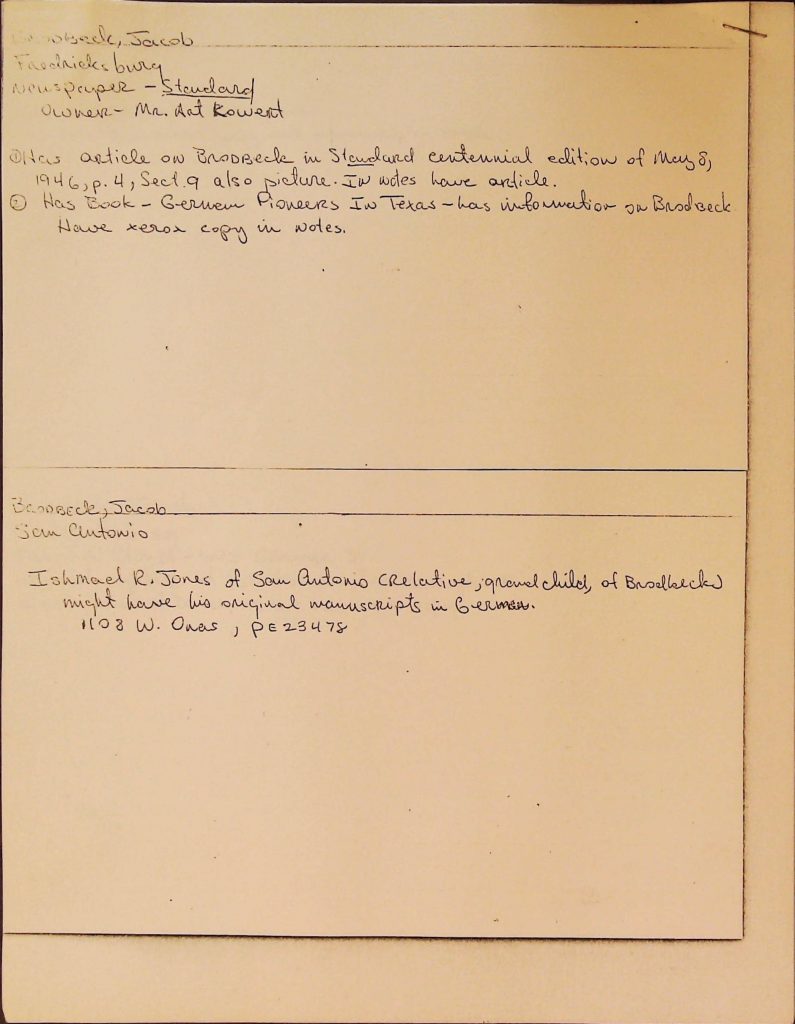 Brodbeck, Jacob
Fredricksburg
Newspaper - Standard
Owner - Mr. Art Kowert
① Has article on Brodbeck in Standard centennial edition of May 8,
1946, p. 4, Sect. 9 also picture. In notes have article.
② Has Book - German Pioneers In Texas - has information on Brodbeck
Have xerox copy in notes.
Brodbeck, Jacob
San Antonio
Ishmael R. Jones of San Antonio (Relative, grandchild, of Brodbeck)
might have his original manuscripts in German.
1108 W. , PE23478